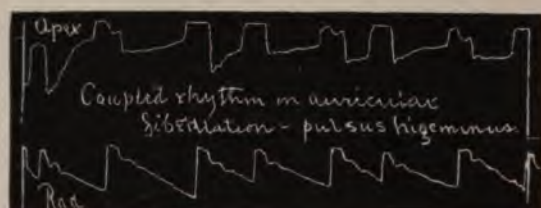 Apex
Coupled rhythm in auricular
fibrillation - pulsus bigeminus.
Rad